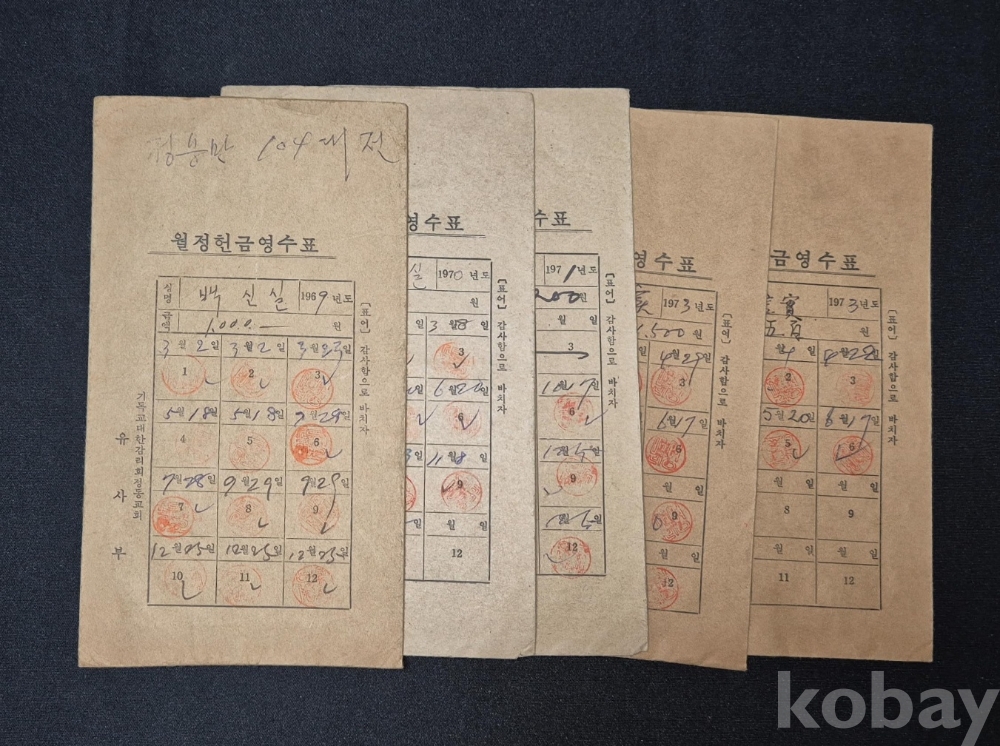 104
월정헌금영수표
성명 백신실 1969년도
금액 1,000.— 원
3월2일 3월2일 3월23일
1 2 3
5월18일 5월18일 7월28일
4 5 6
7월28일 9월29일 9월29일
7 8 9
12월25일 12월25일 12월25일
10 11 12
[표어] 감사함으로 바치자
기독교대한감리회정동교회
유사부
영수표
실 1970년도
원
일 3월8일
3
6월20일
6
11월8일
9
일 월 일
12
[표어] 감사함으로 바치자
수표
1971년도
200 원
월 일
3
10월17일
6
9
12
[표어] 감사함으로 바치자
영수표
實 1973년도
1,500원
4월29일
3
6월17일
6
월 일
9
월 일
12
[표어] 감사함으로 바치자
금영수표
實 1973년도
五百 원
월4일 8월28일
2 3
5월20일 6월17일
5 6
월 일 월 일
8 9
월 일 월 일
11 12
[표어] 감사함으로 바치자
kobay